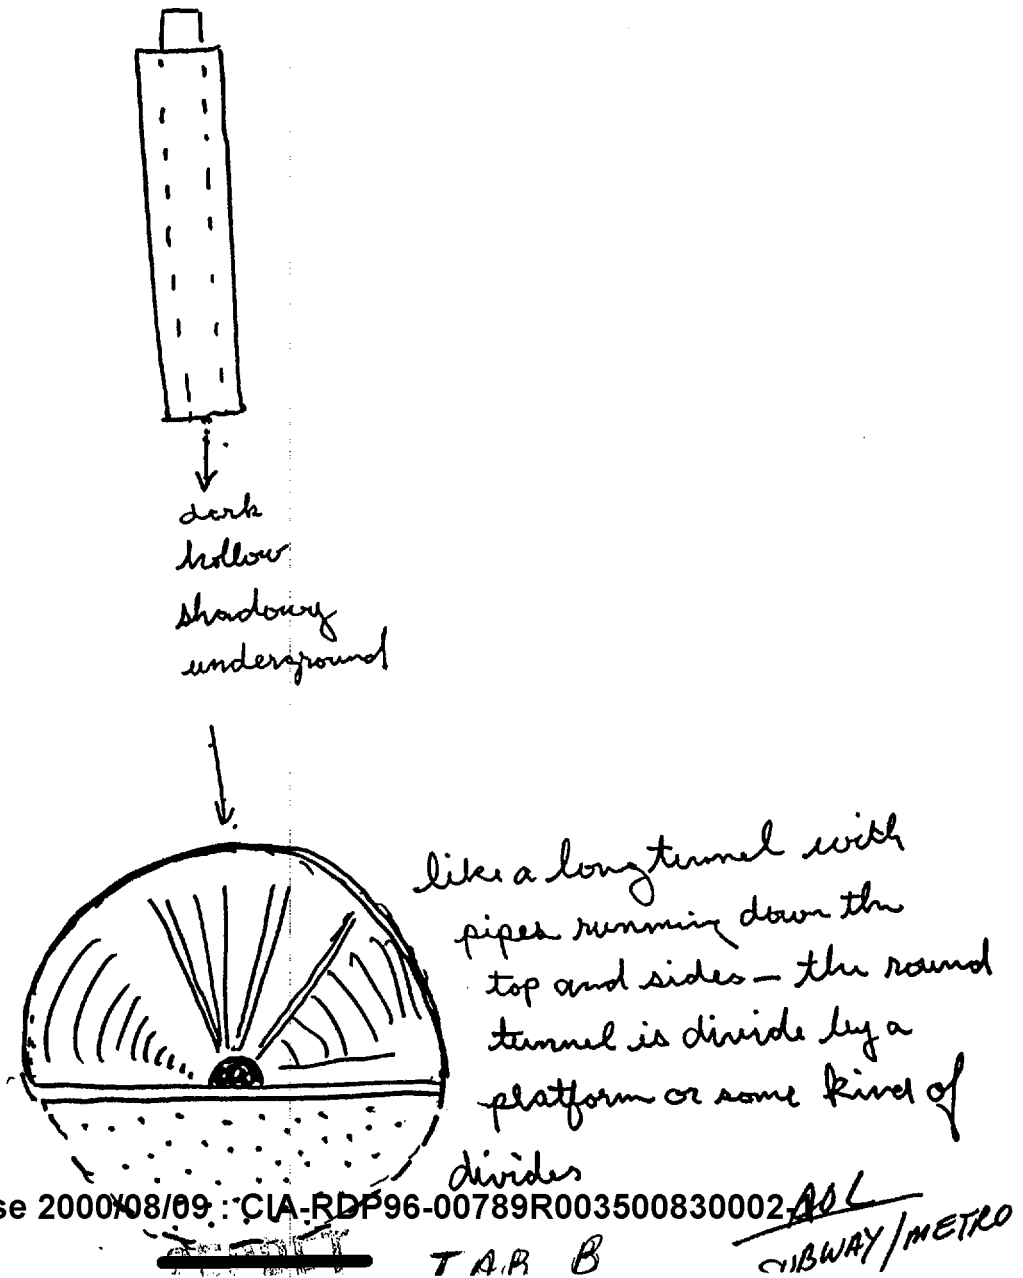 dark
hollow
shadowy
underground
like a long tunnel with
pipes running down the
top and sides — the round
tunnel is divide by a
platform or some kind of
divides
se 2000/08/09 : CIA-RDP96-00789R003500830002-
AOL
SUBWAY/METRO
TAB B